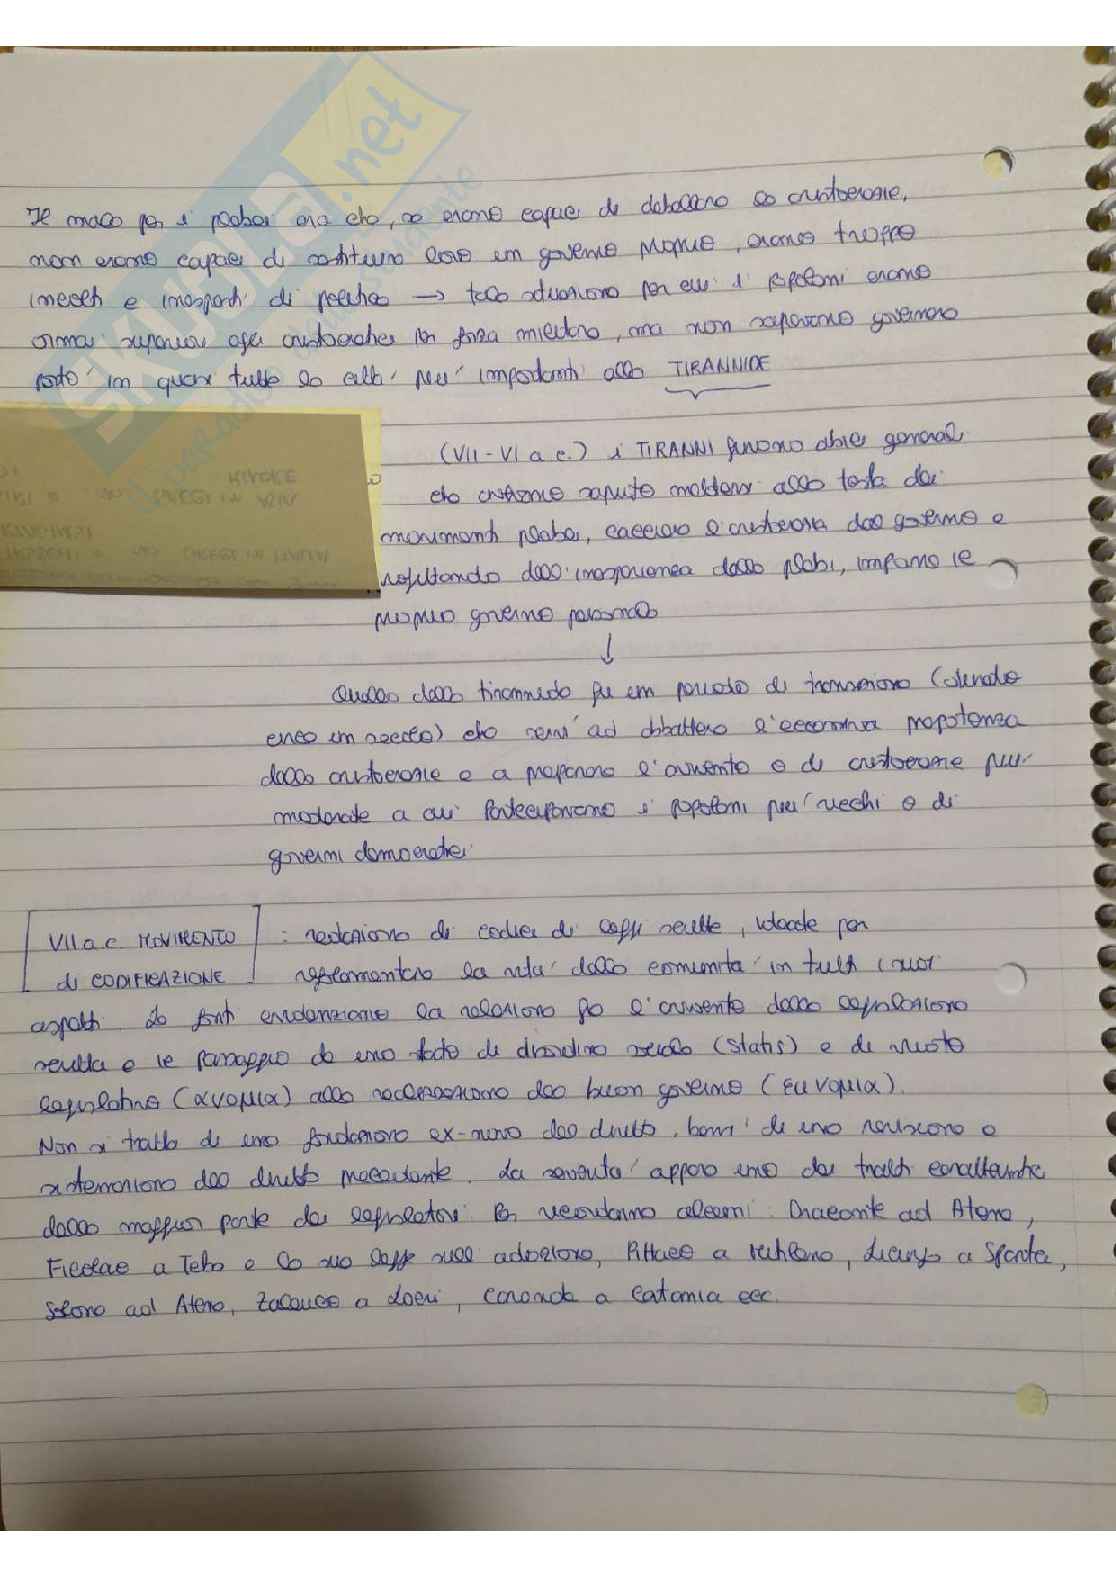 Il malo per i plebei era che, se erano capaci di debellare le aristocrazie,
non erano capaci di costituire loro un governo proprio, erano troppo
incolti e inesperti di politica → tale situazione per cui i popolani erano
ormai superiori agli aristocratici per forza militare, ma non sapevano governare
portò in quasi tutte le città più importanti alla TIRANNIDE
(VII-VI a.c.) i TIRANNI furono abili generali
che avevano saputo mettersi alla testa dei
movimenti plebei, cacciare l'aristocrazia dal governo e
approfittando dell'inesperienza della plebe, imparano il
proprio governo personale
↓
Quello della tirannide fu un periodo di transizione (durato
circa un secolo) che servì ad abbattere l'eccessiva prepotenza
delle aristocrazie e a preparare l'avvento o di aristocrazie più
moderate a cui partecipavano i popolani più ricchi o di
governi democratici
VII a.c MOVIMENTO
di CODIFICAZIONE
: redazione di codici di leggi scritte, ideate per
regolamentare la vita della comunità in tutti i suoi
aspetti. Le fonti evidenziano la relazione fra l'avvento della legislazione
scritta e il passaggio da uno stato di disordine sociale (stasis) e di vuoto
legislativo (ανομια) alla realizzazione del buon governo (ευνομια).
Non si tratta di una fondazione ex-novo del diritto, bensì di una revisione e
sistemazione del diritto precedente. La severità appare uno dei tratti caratteristici
della maggior parte dei legislatori. Se ne ricordano alcuni: Draconte ad Atene,
Filolao a Tebe e la sua legge sull'adozione, Pittaco a Mitilene, Licurgo a Sparta,
Solone ad Atene, Zaleuco a Locri, Caronda a Catania ecc.
SKUOLA.net